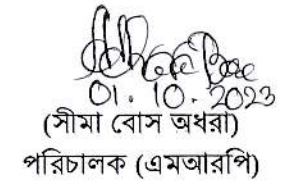 01. 10. 2023
(সীমা বোস অধরা)
পরিচালক (এমআরপি)